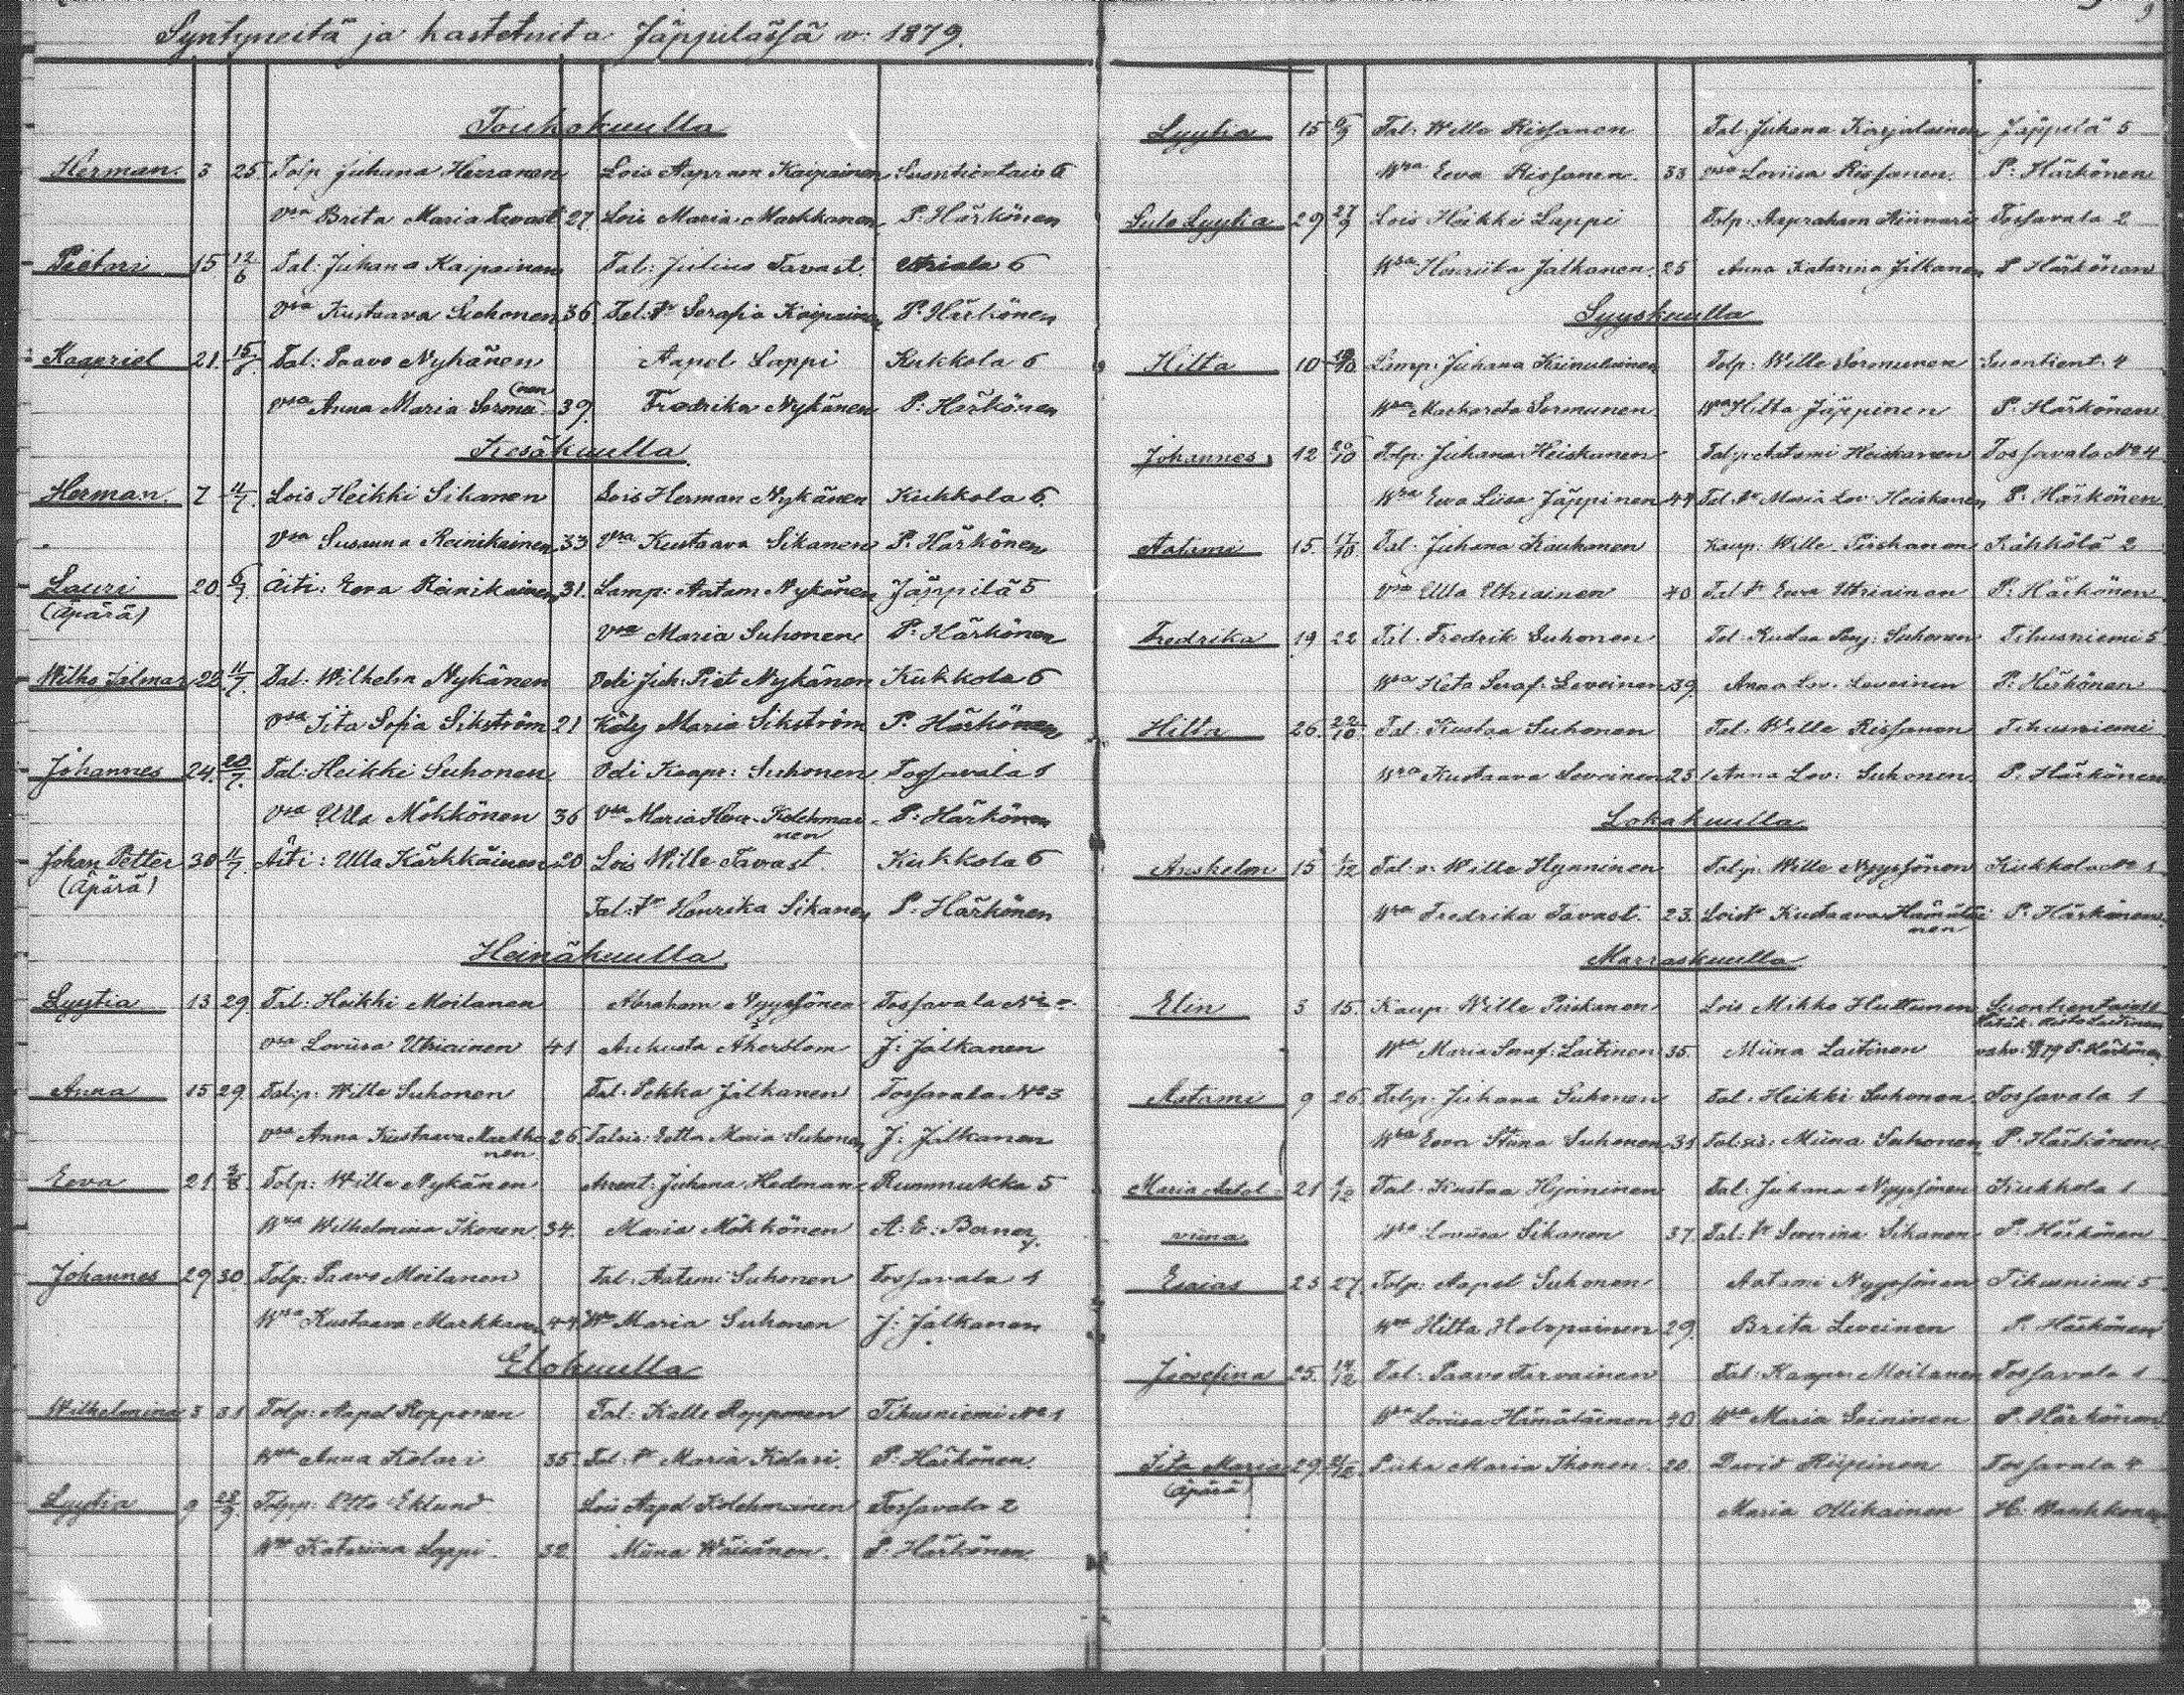 Syntyneitä ja kastetuita Jäppilässä v: 1879.
9
Toukokuulla
Herman. 3 25 Tolp. Juhana Lois Kaipainen Suontientaus 6
vsa Brita Maria Tavast 27. Lois Maria Markkanen P. Härkönen
Pietari 15 12/6 Tal: Juhana Kaipainen Tal: Julius Tavast. Utriala 6
vsa Kustaava Suhonen 36. Tal: tr Serafia Kaipainen P. Härkönen
Kaapriel 21. 15/ Tal: Paavo Nykänen Aapel Lappi Kukkola 6
vsa Anna Maria Sormu(nen 39. Fredrika Nykänen P: Härkönen
Kesäkuulla
Herman. 7 11/7. Lois Heikki Sikanen Lois Herman Nykänen Kukkola 6.
vsa Susanna Reinikainen 33 vsa Kustaava Sikanen P. Härkönen
Lauri 20 6/7. Äiti: Eeva Reinikainen 31. Lamp: Aatam Nykänen Jäppilä 5
(Äpärä)
vsa Maria Suhonen P. Härkönen
Wilho Jalmar 22. 11/7. Tal: Wilhelm Nykänen Veli Juh: Piet Nykänen Kukkola 6
vsa Iita Sofia Sikström 21 Käly Maria Sikström P. Härkönen
Johannes 24. 20/7. Tal: Heikki Suhonen Veli Kaapr: Suhonen Tossavala 1
vsa Ulla Mökkönen 36 vsa Maria Kolehmai- P: Härkönen
nen
Johan Petter 30 11/7. Äiti: Ulla Kärkkäinen 20 Lois Wille Tavast Kukkola 6
(Äpärä)
Tal: tr Henrika Sikanen P. Härkönen
Heinäkuulla
Lyytia 13 29. Tal: Heikki Moilanen Abraham Nyyssönen Tossavala
vsa Loviisa Utriainen 41 Auhusta Åkerblom J: Jalkanen
Anna 15 29. Talip: Wille Suhonen Tal: Pekka Jalkanen Tossavala No 3
vsa Anna Kustaava Markka 26 Eetta Maria Suhonen J: Jalkanen
nen
Eeva 21. 3/8. Tolp: Wille Nykänen Arent: Juhana Hedman Rummukka 5
Wsa Wilhelmina Ikonen 34. Maria Mökkönen A: E: Borney.
Johannes 29 30. Tolp: Paavo Moilanen Tal: Aatami Suhonen Tossavala 1
Wsa Kustaava Markkanen 44. Wsa Maria Suhonen J: Jalkanen
Elokuulla
Wilhelmina 3 31 Tolp: Aapel Ropponen Tal: Kalle Ropponen Tihusniemi No 1
Wsa Anna Kolari 35. Tal: tr Maria Kolari. P. Härkönen.
Lyytia 9 28/9. Tolpp: Otto Eklund Lois Aapel Kolehmainen Tossavala 2
Wsa Katariina Lappi. 32. Miina Wäisänen. P. Härkönen.
Lyytia 15 6/9 Tal: Wille Rissanen Tal: Juhana Karjalainen Jäppilä 5
Wsa Eeva Rissanen. 33 vsa Loviisa Rissanen. P: Härkönen
Lyytia 29 27/9 Lois Heikki Lappi Tolp: Aapraham Tossavala 2
Wsa Henriika Jalkanen. 25 Anna Katarina Jalkanen P Härkönen
Syyskuulla
Hilta 10 Lamp: Juhana Kainulainen Tolp: Wille Sormunen Suontient: 4
Wsa Markareta Sormunen Wsa Hilta Jäppinen P. Härkönen
Johannes. 12 20/10 Tolp: Juhana Heiskanen Talp: Aatami Heiskanen Tossavala No 4
Wsa Eeva Liisa Jäppinen 44 Tal tr Maria Lov: Heiskanen P. Härkönen.
Aatami 15. 17/10 Tal: Juhana Kauhanen Kaup: Wille Pirskanen Kähkölä 2
vsa Ulla Utriainen 40 Tal tr Eeva Utriainen P. Härkönen
Fredrika 19 22 Tal: Fredrik Suhonen Tal: Kustaa Suhonen Tihusniemi 5
Wsa Heta Seraf: Leveinen 39. Anna Lov. Leveinen P: Härkönen
Hilta 26. 22/10. Tal: Kustaa Suhonen Tal: Wille Rissanen Tihusniemi
Wsa Kustaava Leveinen 25 Anna Lov: Suhonen P. Härkönen
Lokakuulla
Anshelm 15 Tal: Wille Hynninen Talp: Wille Nyyssönen Kukkola No 1
Wsa Fredrika Tavast. 23. Kustaava Hämälai P. Härkönen
nen
Marraskuulla
Elin 3 15. Kaup: Wille Pirskanen Lois Mikko Huttunen Suontientaus
Wsa Maria Seraf: Laitinen 35. Miina Laitinen P. Härkönen
Aatami 9 26. Talp: Juhana Suhonen Tal: Heikki Suhonen Tossavala 1
Wsa Eeva Stiina Suhonen 31 Miina Suhonen P. Härkönen.
Maria Aatol 21 Tal: Kustaa Hynninen Tal: Juhana Nyyssönen Kukkola 1
viina Wsa Loviisa Sikanen 37. Tal: tr Severina Sikanen P. Härkönen
Esaias 23 27. Tolp: Aapel Suhonen Aatami Nyyssönen Tihusniemi 5
Wsa Hilta Holopainen 29. Brita Leveinen P. Härkönen
Josefina 25. 14/12 Tal: Paavo Tarvainen Tal: Kaapr: Moilanen Tossavala 1
Wsa Loviisa Hämäläinen 40 Wsa Maria Soininen P. Härkönen
Iita Maria 29 Piika Maria Ikonen. 20. David Riipinen Tossavala 4
(Äpärä)
Maria Ollikainen